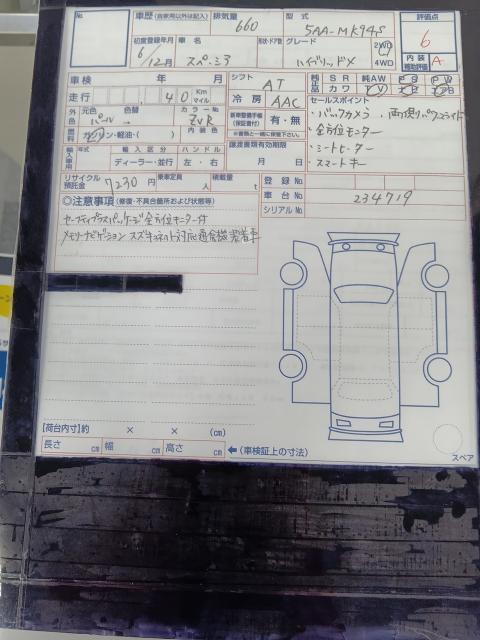 No.
車歴 (自家用以外は記入)
排気量
660
型式
5AA-MK94S
評価点
6
初度登録年月
6/12月
車名
スペーシア
形状・ドア数
グレード
ハイブリッドX
2WD
4WD
内装
補助評価
A
車検
年 月
シフト
AT
純正品
SR
純AW
PS
PW
カワ
TV
走行
40
Km
マイル
冷房
AAC
セールスポイント
・バックカメラ ・両側パワスラ
・全方位モニター
・シートヒーター
・スマートキー
外色
元色
色替
パール →
カラーNo
ZVR
新車整備手帳
(保証書付)
有・無
※書類と一緒に保管下さい。
燃料
ガソリン・軽油・( )
内装色
輸入車用
年式
輸入区分
ハンドル
ディーラー・並行
左・右
譲渡書類有効期限
月 日
リサイクル預託金
7230円
乗車定員
人
積載量
t
登録No
車台No
234719
シリアルNo
◎注意事項 (修復・不具合箇所および状態等)
セーフティプラスパッケージ 全方位モニター付
メモリーナビゲーション スズキコネクト対応通信機装着車
【荷台内寸】約 × × (cm)
長さ cm
幅 cm
高さ cm
(車検証上の寸法)
スペア